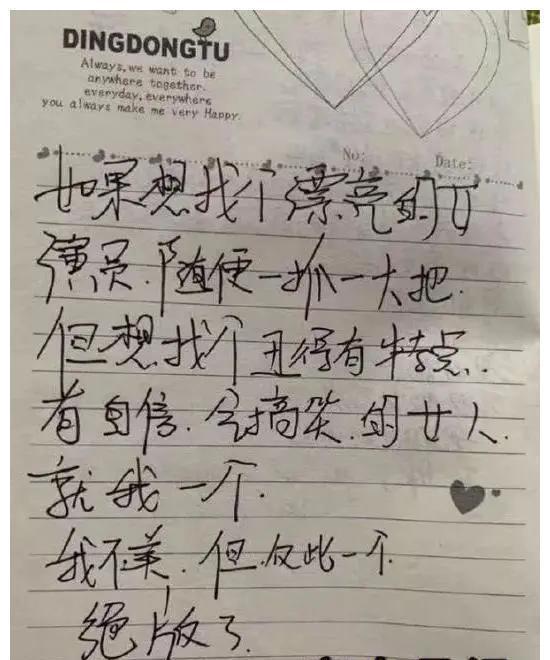 DINGDONGTU
Always,we want to be
anywhere together.
everyday,everywhere
you always make me very Happy.
No:
Date:
如果想找个漂亮的女
演员.随便一抓一大把.
但想找个丑得有特点.
有自信.会搞笑.的女人.
就我一个.
我不美,但仅此一个.
绝版了.